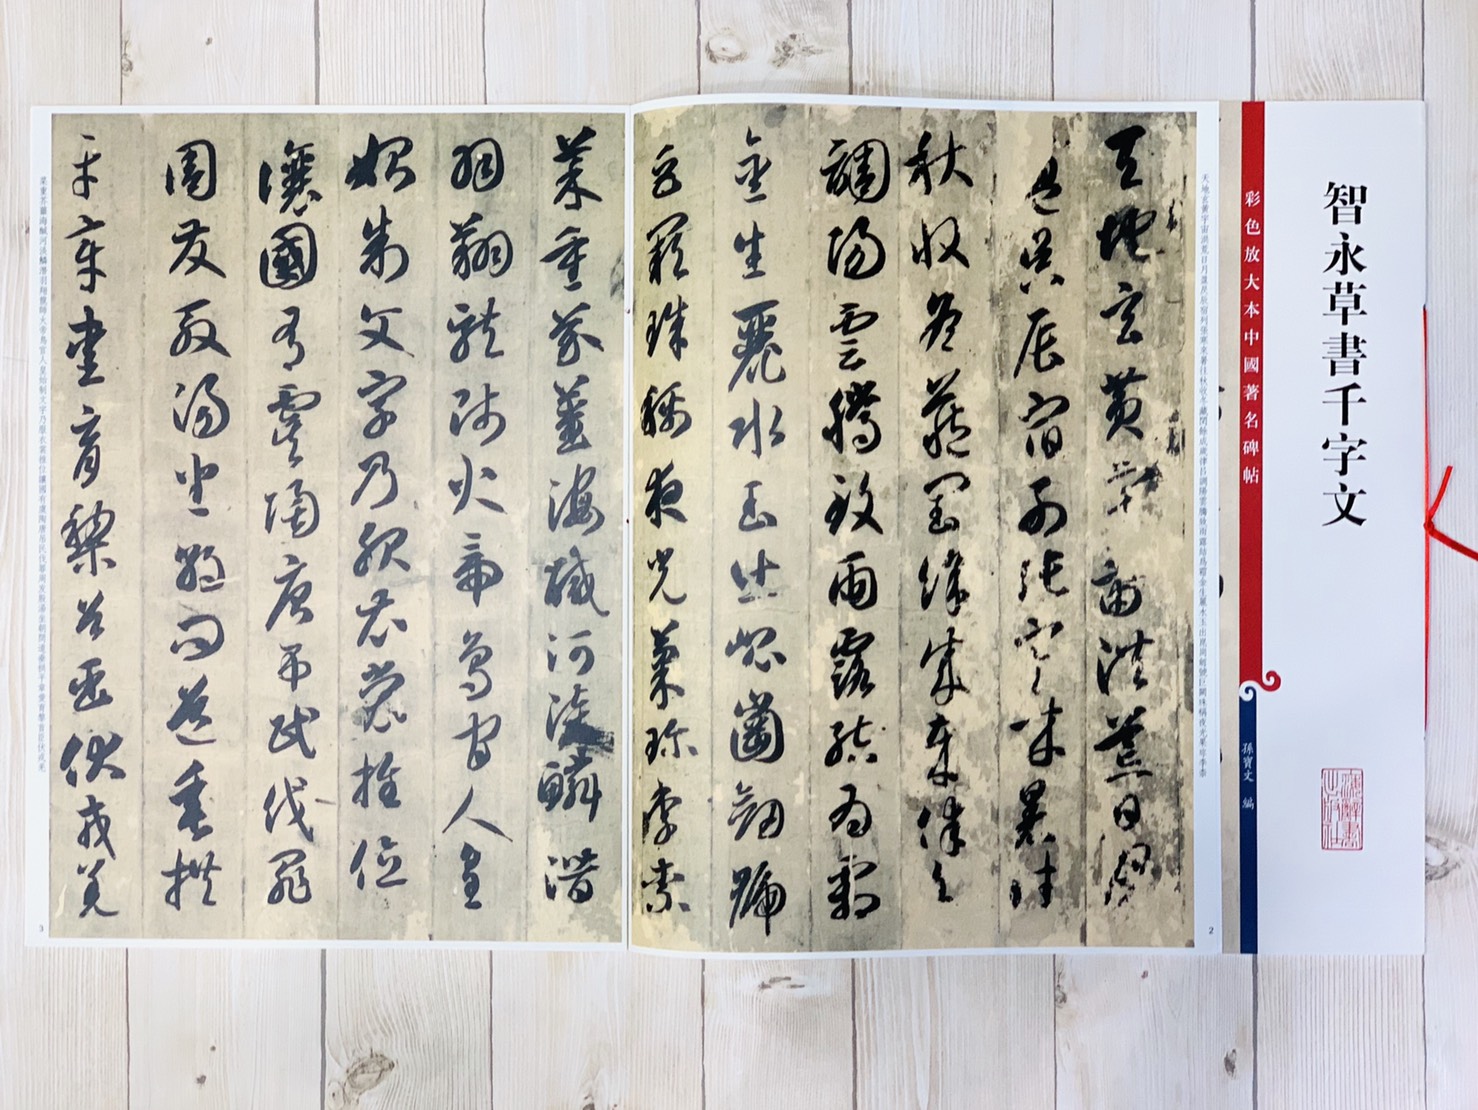 智永草書千字文
彩色放大本中國著名碑帖
孫寶文 編
天地玄黃宇宙洪荒日月盈昃辰宿列張寒來暑往秋收冬藏閏餘成歲律呂調陽雲騰致雨露結爲霜金生麗水玉出崑岡劍號巨闕珠稱夜光菓珍李柰
天地玄黃宇宙洪荒日月
盈昃辰宿列張寒來暑往
秋收冬藏閏餘成歲律呂
調陽雲騰致雨露結爲霜
金生麗水玉出崑崗劍號
巨闕珠稱夜光菓珍李柰
2
菜重芥薑海醎河淡鱗潛
羽翔龍師火帝鳥官人皇
始制文字乃服衣裳推位
讓國有虞陶唐弔民伐罪
周發殷湯坐朝問道垂拱
平章愛育黎首臣伏戎羌
菜重芥薑海鹹河淡鱗潛羽翔龍師火帝鳥官人皇始制文字乃服衣裳推位讓國有虞陶唐弔民伐罪周發殷湯坐朝問道垂拱平章愛育黎首臣伏戎羌
3